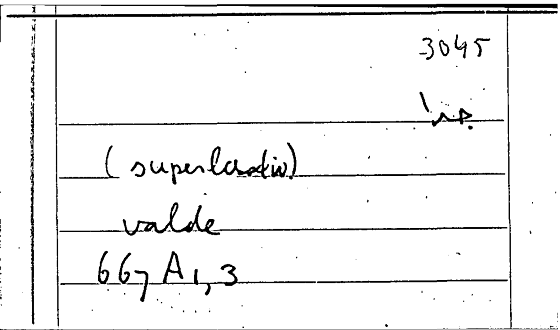 3045
(superlativ)
valde
667 A 1, 3